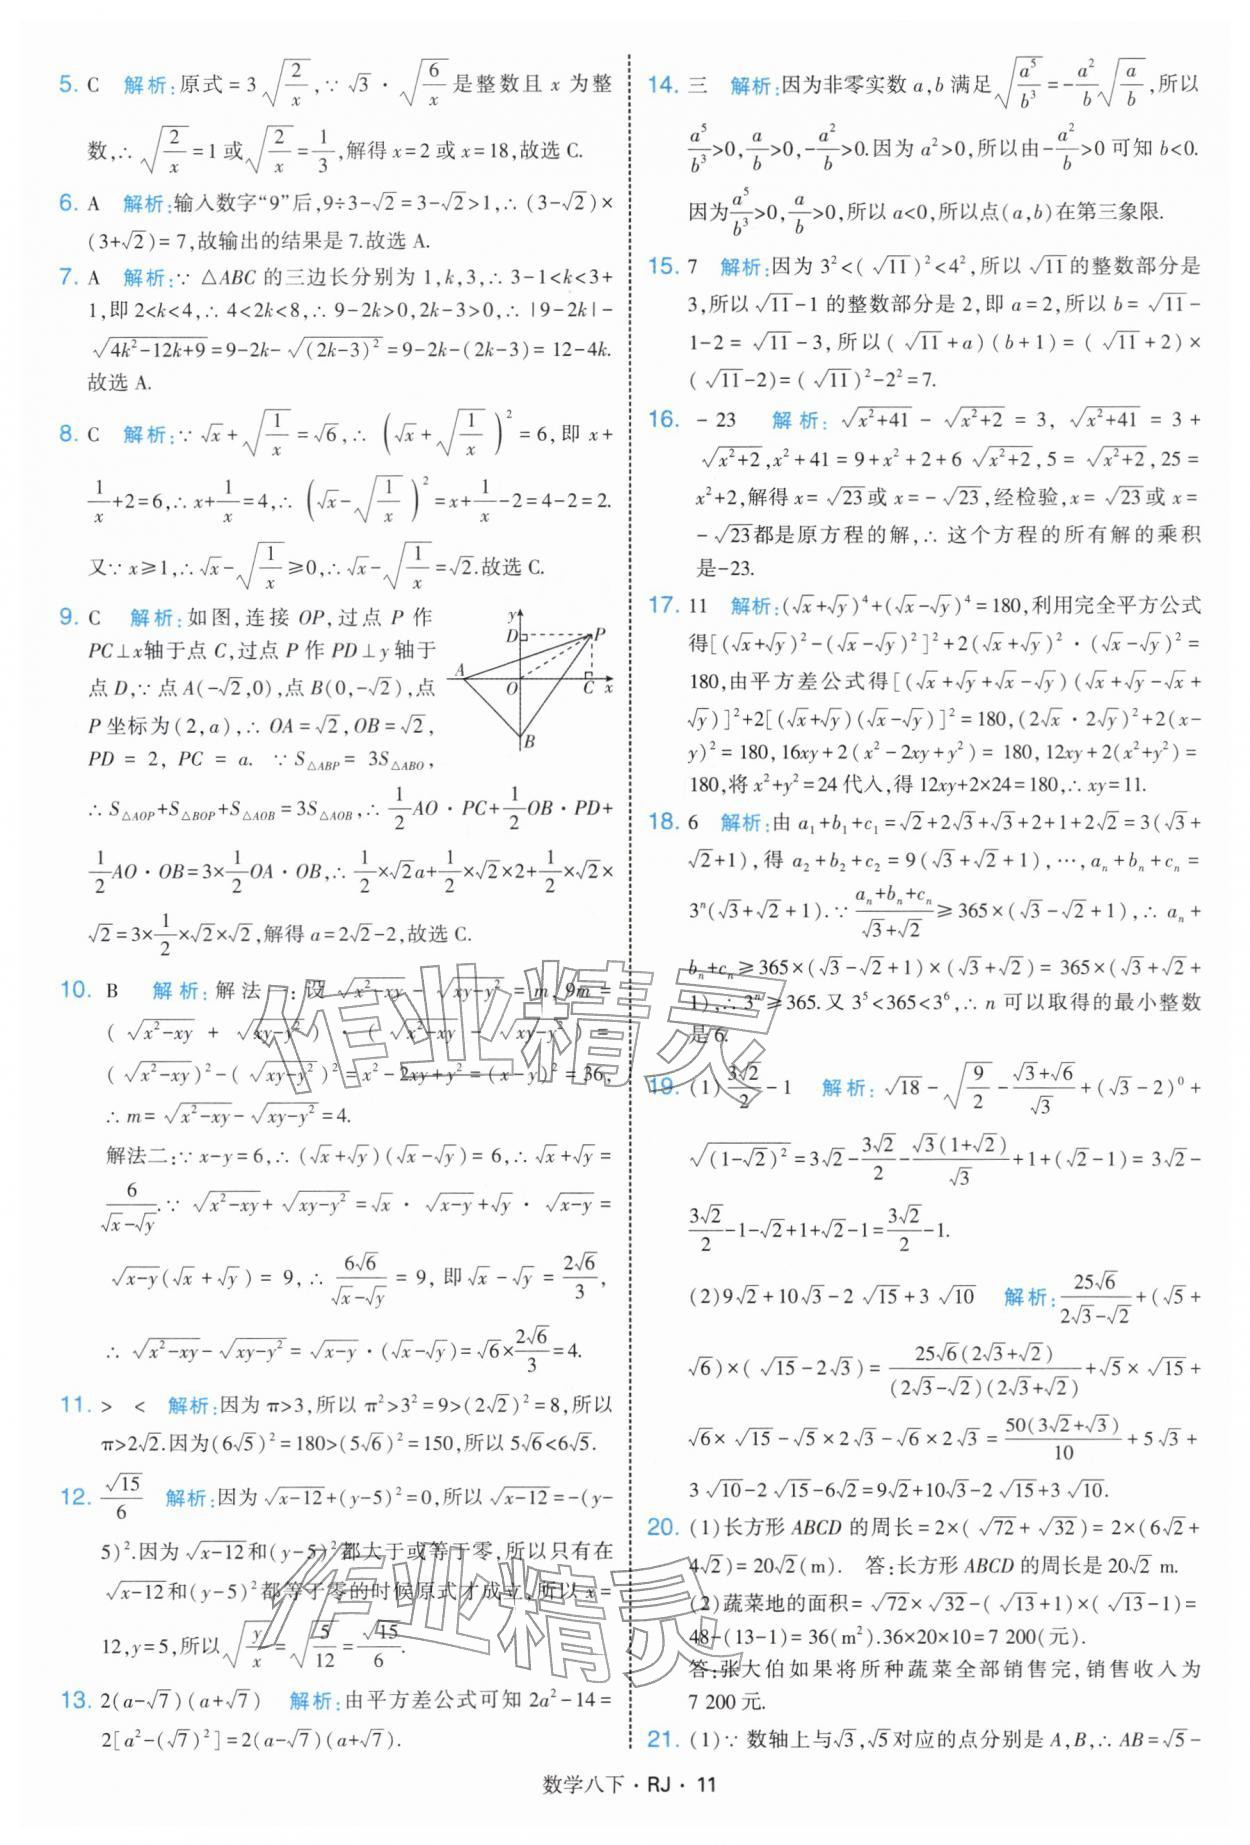 5. C 解析:原式=3√(2/x),∵√3·√(6/x)是整数且 x 为整
数,∴√(2/x)=1或√(2/x)=1/3,解得x=2或x=18,故选C.
6. A 解析:输入数字“9”后,9÷3-√2=3-√2>1,∴(3-√2)×
(3+√2)=7,故输出的结果是7.故选A.
7. A 解析:∵△ABC的三边长分别为1,k,3,∴3-1<k<3+
1,即2<k<4,∴4<2k<8,∴9-2k>0,2k-3>0,∴|9-2k|-
√(4k²-12k+9)=9-2k-√((2k-3)²)=9-2k-(2k-3)=12-4k.
故选A.
8. C 解析:∵√x+√(1/x)=√6,∴(√x+√(1/x))²=6,即x+
1/x+2=6,∴x+1/x=4,∴(√x-√(1/x))²=x+1/x-2=4-2=2.
又∵x≥1,∴√x-√(1/x)≥0,∴√x-√(1/x)=√2.故选C.
9. C 解析:如图,连接OP,过点P作
PC⊥x轴于点C,过点P作PD⊥y轴于
点D,∵点A(-√2,0),点B(0,-√2),点
P坐标为(2,a),∴OA=√2,OB=√2,
PD=2,PC=a. ∵S△ABP=3S△ABO,
y
D
P
A
O
C
x
B
∴S△AOP+S△BOP+S△AOB=3S△AOB,∴1/2AO·PC+1/2OB·PD+
1/2AO·OB=3×1/2OA·OB,∴1/2×√2a+1/2×√2×2+1/2×√2×
√2=3×1/2×√2×√2,解得a=2√2-2,故选C.
10. B 解析:解法一:设√(x²-xy)-√(xy-y²)=m,9m=
(√(x²-xy)+√(xy-y²))·(√(x²-xy)-√(xy-y²))=
(√(x²-xy))²-(√(xy-y²))²=x²-2xy+y²=(x-y)²=36,
∴m=√(x²-xy)-√(xy-y²)=4.
解法二:∵x-y=6,∴(√x+√y)(√x-√y)=6,∴√x+√y=
6/(√x-√y).∵√(x²-xy)+√(xy-y²)=√x·√(x-y)+√y·√(x-y)=
√(x-y)(√x+√y)=9,∴6√6/(√x-√y)=9,即√x-√y=2√6/3,
∴√(x²-xy)-√(xy-y²)=√(x-y)·(√x-√y)=√6×2√6/3=4.
11. > < 解析:因为π>3,所以π²>3²=9>(2√2)²=8,所以
π>2√2.因为(6√5)²=180>(5√6)²=150,所以5√6<6√5.
12. √15/6 解析:因为√(x-12)+(y-5)²=0,所以√(x-12)=-(y-
5)².因为√(x-12)和(y-5)²都大于或等于零,所以只有在
√(x-12)和(y-5)²都等于零的时候原式才成立,所以x=
12,y=5,所以√(y/x)=√(5/12)=√15/6.
13. 2(a-√7)(a+√7) 解析:由平方差公式可知2a²-14=
2[a²-(√7)²]=2(a-√7)(a+√7).
14. 三 解析:因为非零实数a,b满足√(a⁵/b³)=-a²/b√(a/b),所以
a⁵/b³>0,a/b>0,-a²/b>0.因为a²>0,所以由-a²/b>0可知b<0.
因为a⁵/b³>0,a/b>0,所以a<0,所以点(a,b)在第三象限.
15. 7 解析:因为3²<(√11)²<4²,所以√11的整数部分是
3,所以√11-1的整数部分是2,即a=2,所以b=√11-
1-2=√11-3,所以(√11+a)(b+1)=(√11+2)×
(√11-2)=(√11)²-2²=7.
16. -23 解析:√(x²+41)-√(x²+2)=3,√(x²+41)=3+
√(x²+2),x²+41=9+x²+2+6√(x²+2),5=√(x²+2),25=
x²+2,解得x=√23或x=-√23,经检验,x=√23或x=
-√23都是原方程的解,∴这个方程的所有解的乘积
是-23.
17. 11 解析:(√x+√y)⁴+(√x-√y)⁴=180,利用完全平方公式
得[(√x+√y)²-(√x-√y)²]²+2(√x+√y)²·(√x-√y)²=
180,由平方差公式得[(√x+√y+√x-√y)(√x+√y-√x+
√y)]²+2[(√x+√y)(√x-√y)]²=180,(2√x·2√y)²+2(x-
y)²=180,16xy+2(x²-2xy+y²)=180,12xy+2(x²+y²)=
180,将x²+y²=24代入,得12xy+2×24=180,∴xy=11.
18. 6 解析:由a₁+b₁+c₁=√2+2√3+√3+2+1+2√2=3(√3+
√2+1),得a₂+b₂+c₂=9(√3+√2+1),…,aₙ+bₙ+cₙ=
3ⁿ(√3+√2+1).∵(aₙ+bₙ+cₙ)/(√3+√2)≥365×(√3-√2+1),∴aₙ+
bₙ+cₙ≥365×(√3-√2+1)×(√3+√2)=365×(√3+√2+
1),∴3ⁿ≥365.又3⁵<365<3⁶,∴n可以取得的最小整数
是6.
19. (1)3√2/2-1 解析:√18-√(9/2)-(√3+√6)/√3+(√3-2)⁰+
√((1-√2)²)=3√2-3√2/2-√3(1+√2)/√3+1+(√2-1)=3√2-
3√2/2-1-√2+1+√2-1=3√2/2-1.
(2)9√2+10√3-2√15+3√10 解析:25√6/(2√3-√2)+(√5+
√6)×(√15-2√3)=25√6(2√3+√2)/((2√3-√2)(2√3+√2))+√5×√15+
√6×√15-√5×2√3-√6×2√3=50(3√2+√3)/10+5√3+
3√10-2√15-6√2=9√2+10√3-2√15+3√10.
20. (1)长方形ABCD的周长=2×(√72+√32)=2×(6√2+
4√2)=20√2(m). 答:长方形ABCD的周长是20√2 m.
(2)蔬菜地的面积=√72×√32-(√13+1)×(√13-1)=
48-(13-1)=36(m²).36×20×10=7 200(元).
答:张大伯如果将所种蔬菜全部销售完,销售收入为
7 200元.
21. (1)∵数轴上与√3,√5对应的点分别是A,B,∴AB=√5-
数学八下·RJ·11
作业精灵
作业精灵